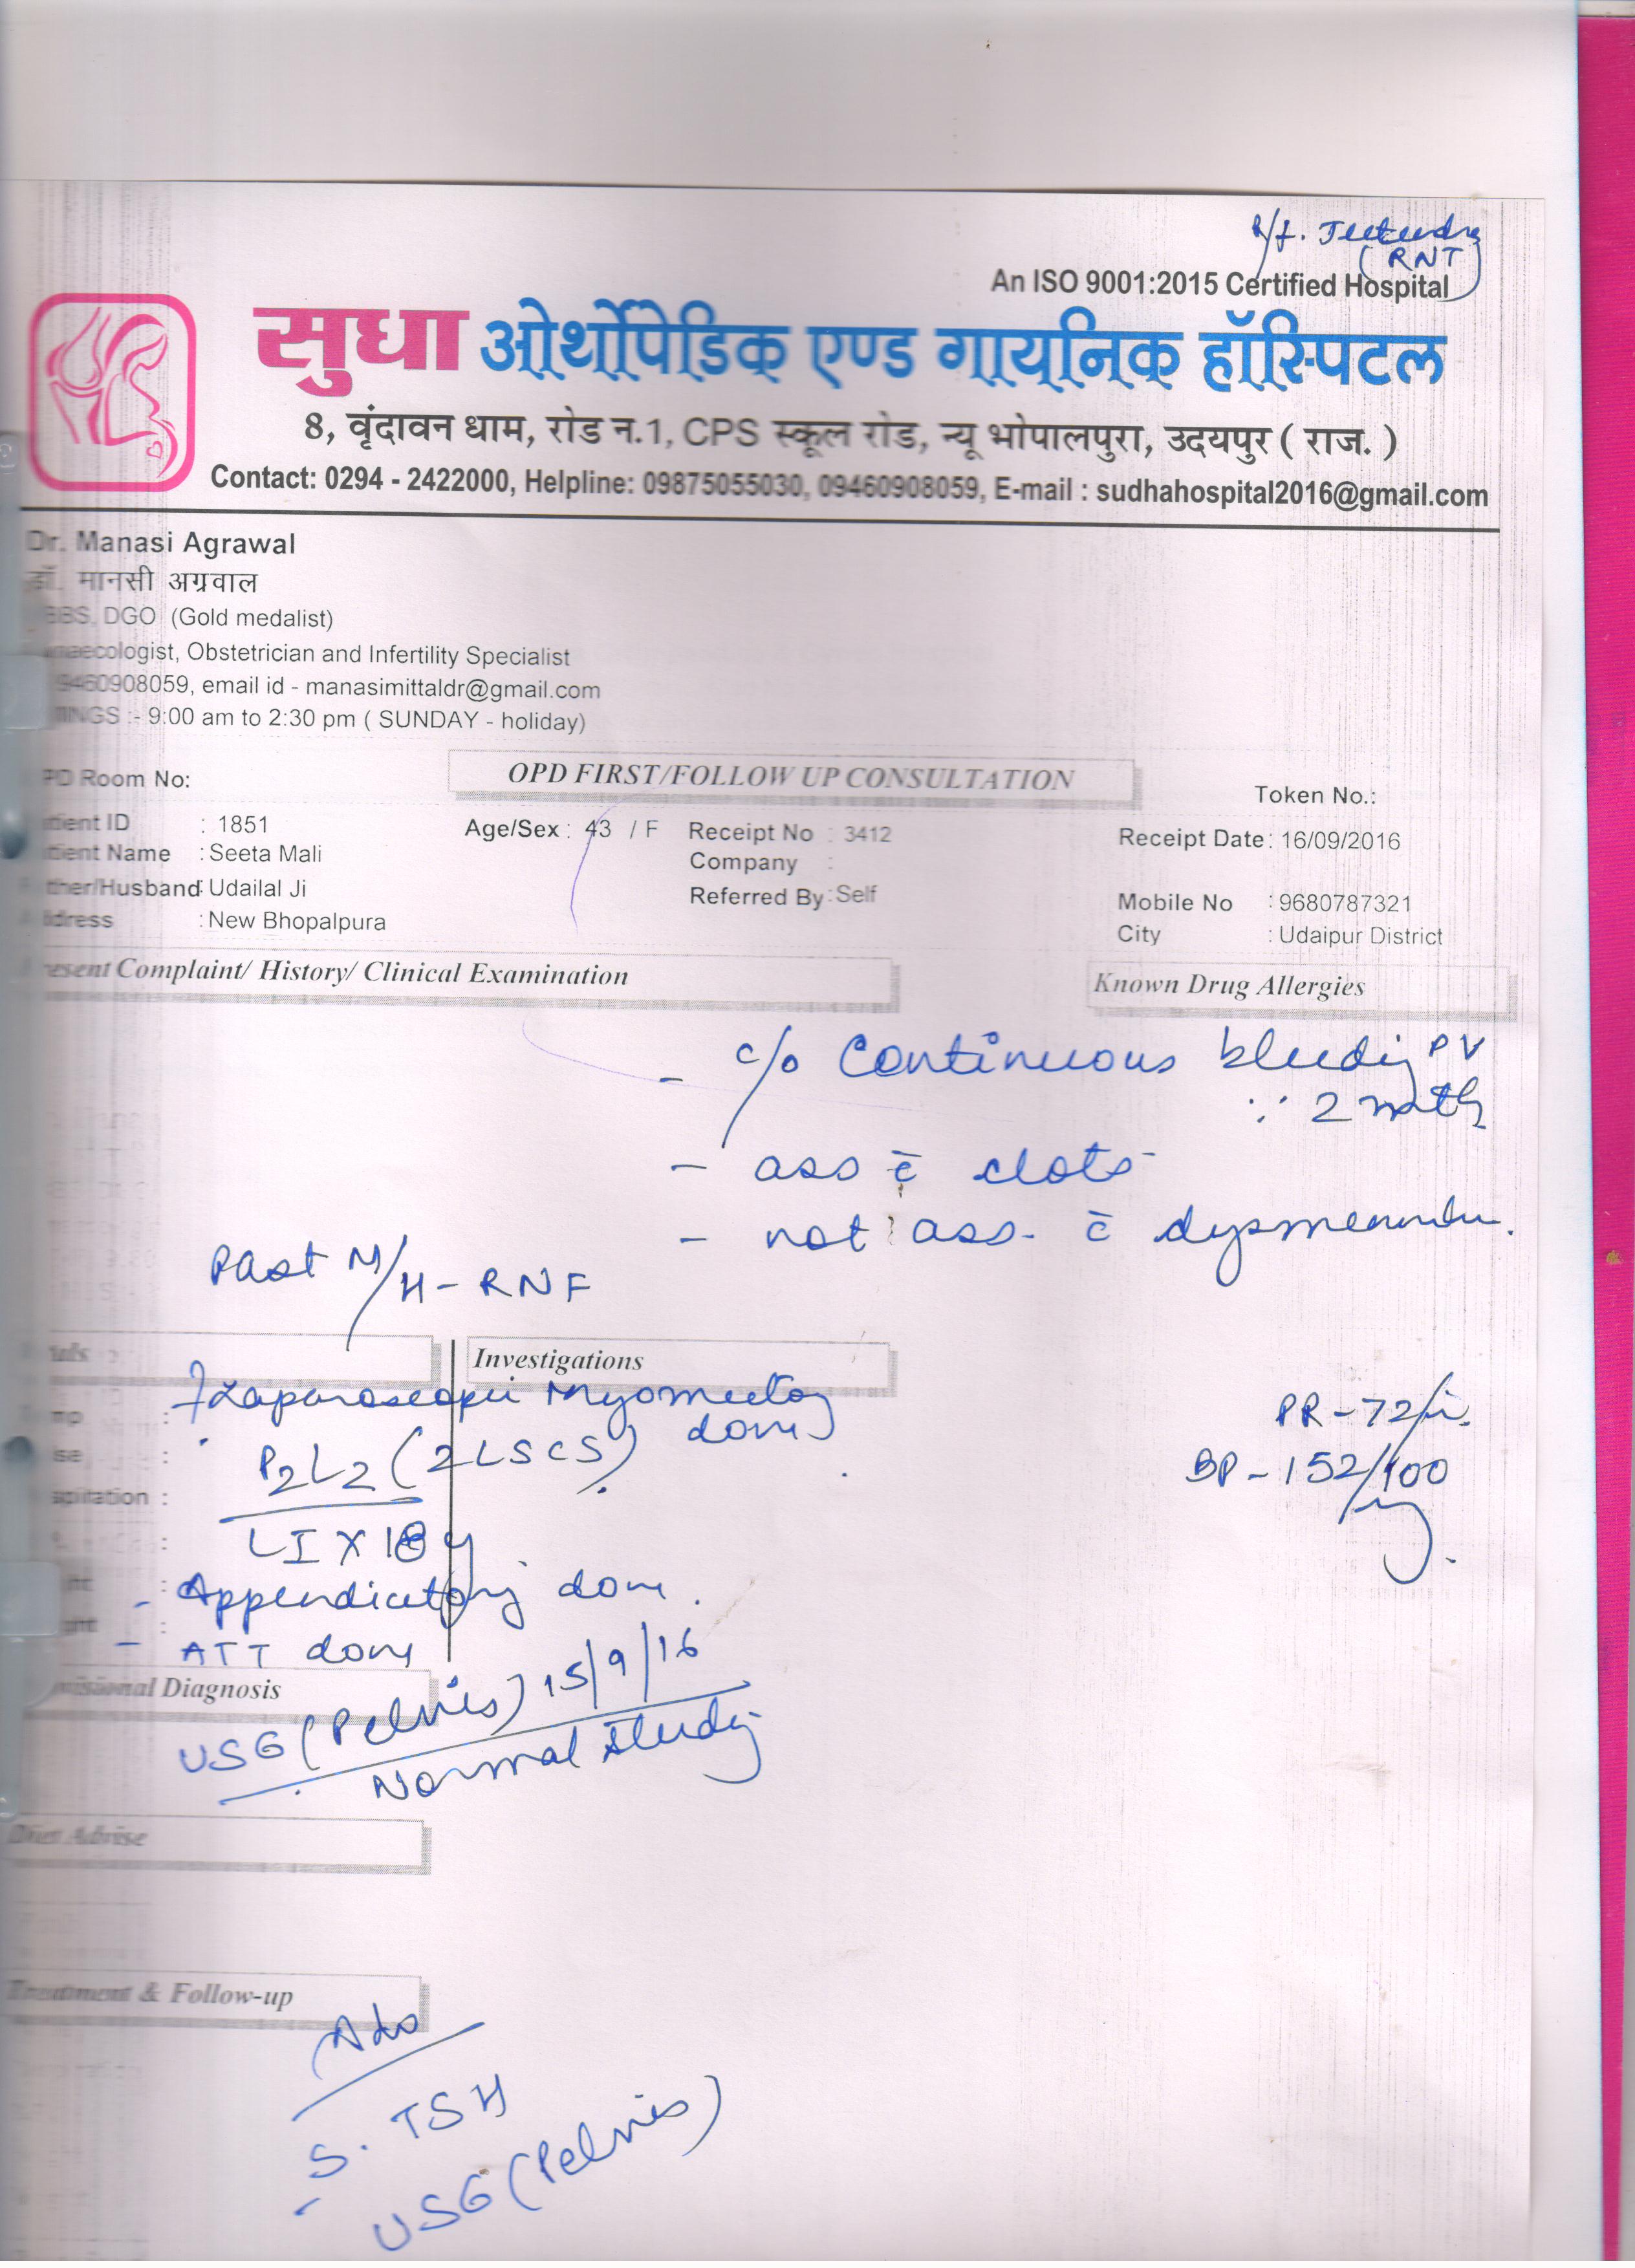 R/f. Jeetendra
(RNT)
An ISO 9001:2015 Certified Hospital
सुधा ओर्थोपेडिक एण्ड गायनिक हॉस्पिटल
8, वृंदावन धाम, रोड न.1, CPS स्कूल रोड, न्यू भोपालपुरा, उदयपुर ( राज. )
Contact: 0294 - 2422000, Helpline: 09875055030, 09460908059, E-mail : sudhahospital2016@gmail.com
Dr. Manasi Agrawal
डॉ. मानसी अग्रवाल
BBS, DGO (Gold medalist)
naecologist, Obstetrician and Infertility Specialist
9460908059, email id - manasimittaldr@gmail.com
INGS :- 9:00 am to 2:30 pm ( SUNDAY - holiday)
PD Room No:
OPD FIRST/FOLLOW UP CONSULTATION
Token No.:
tient ID : 1851
Age/Sex : 43 / F
Receipt No : 3412
Receipt Date: 16/09/2016
tient Name : Seeta Mali
Company :
ther/Husband: Udailal Ji
Referred By: Self
Mobile No : 9680787321
ddress : New Bhopalpura
City : Udaipur District
resent Complaint/ History/ Clinical Examination
Known Drug Allergies
- c/o Continuous bleeding PV
∵ 2 mth
- ass c̄ clots
- not ass. c̄ dysmenorrhea.
Past M/H - RNF
tals
Investigations
Laparoscopic Myomectomy
done
PR - 72/
mp :
se :
P2L2 (2 LSCS)
BP - 152/100
spiration :
LI X 18 y
- Appendicectomy done.
- ATT done
visional Diagnosis
USG (Pelvis) 15/9/16
Normal Study
Diet Advise
Treatment & Follow-up
Adv
S. TSH
USG (Pelvis)